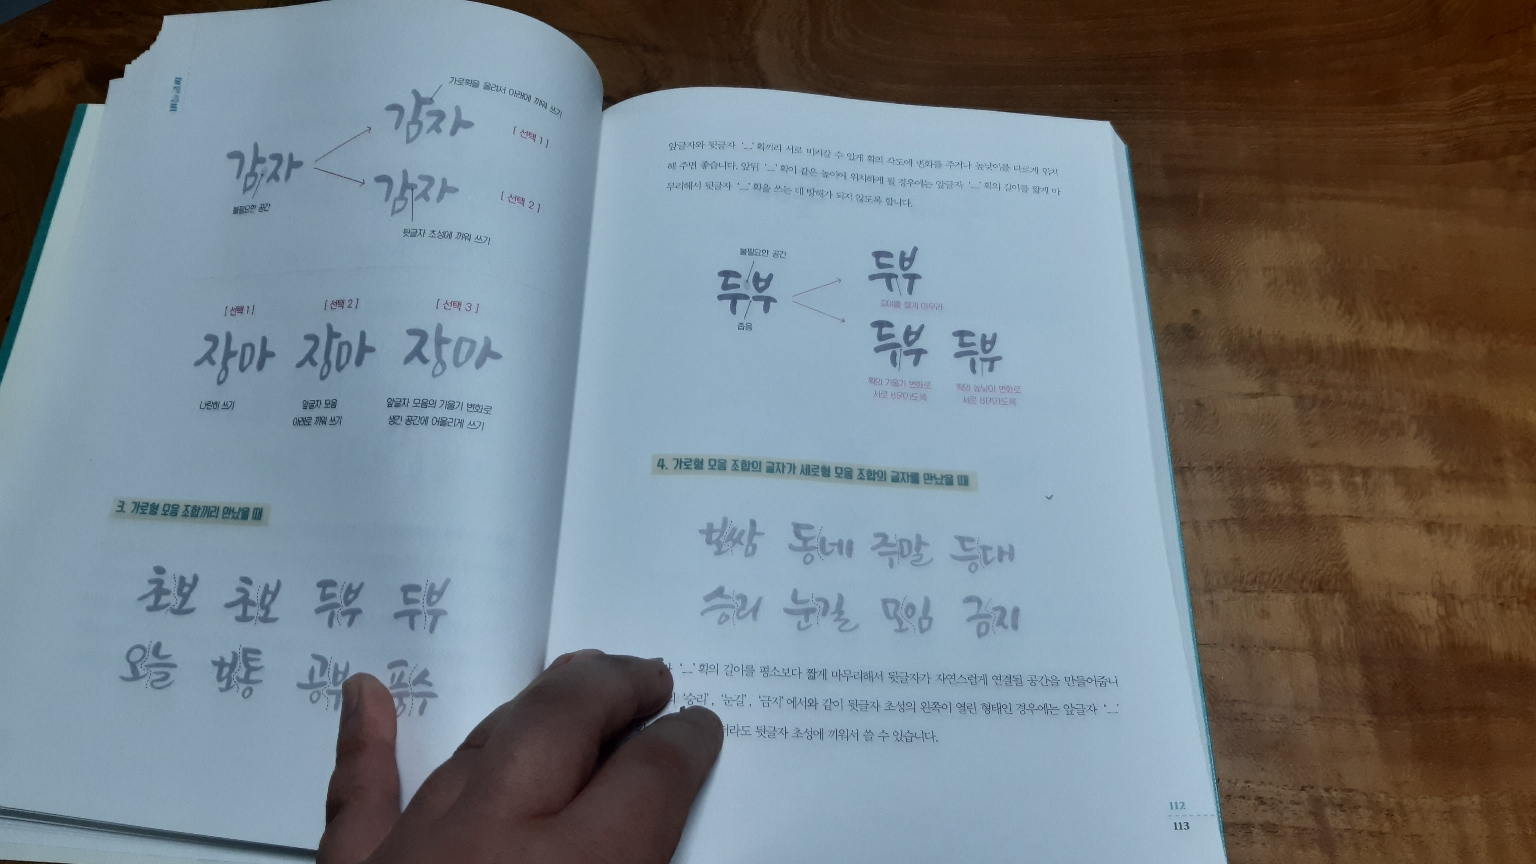 가로획을 올려서 아래에 끼워 쓰기
감자
[ 선택 1 ]
감자
불필요한 공간
감자
[ 선택 2 ]
뒷글자 초성에 끼워 쓰기
[ 선택 1 ] [ 선택 2 ] [ 선택 3 ]
장마 장마 장마
나란히 쓰기
앞글자 모음
아래로 끼워 쓰기
앞글자 모음의 기울기 변화로
생긴 공간에 어울리게 쓰기
3. 가로형 모음 조합끼리 만났을 때
초보 초보 두부 두부
오늘 보통 공부 풍수
앞글자와 뒷글자 'ㅡ' 획끼리 서로 비켜갈 수 있게 획의 각도에 변화를 주거나 높낮이를 다르게 위치
해 주면 좋습니다. 앞뒤 'ㅡ' 획이 같은 높이에 위치하게 될 경우에는 앞글자 'ㅡ' 획의 길이를 짧게 마
무리해서 뒷글자 'ㅡ' 획을 쓰는 데 방해가 되지 않도록 합니다.
불필요한 공간
두부
좁음
두부
길이를 짧게 마무리
두부 두부
획의 기울기 변화로
서로 비켜가도록
획의 높낮이 변화로
서로 비켜가도록
4. 가로형 모음 조합의 글자가 세로형 모음 조합의 글자를 만났을 때
보쌈 동네 주말 등대
승리 눈길 모임 금지
'ㅡ' 획의 길이를 평소보다 짧게 마무리해서 뒷글자가 자연스럽게 연결될 공간을 만들어줍니
'승리', '눈길', '금지'에서와 같이 뒷글자 초성의 왼쪽이 열린 형태인 경우에는 앞글자 'ㅡ'
뒷글자 초성에 끼워서 쓸 수 있습니다.
112
113